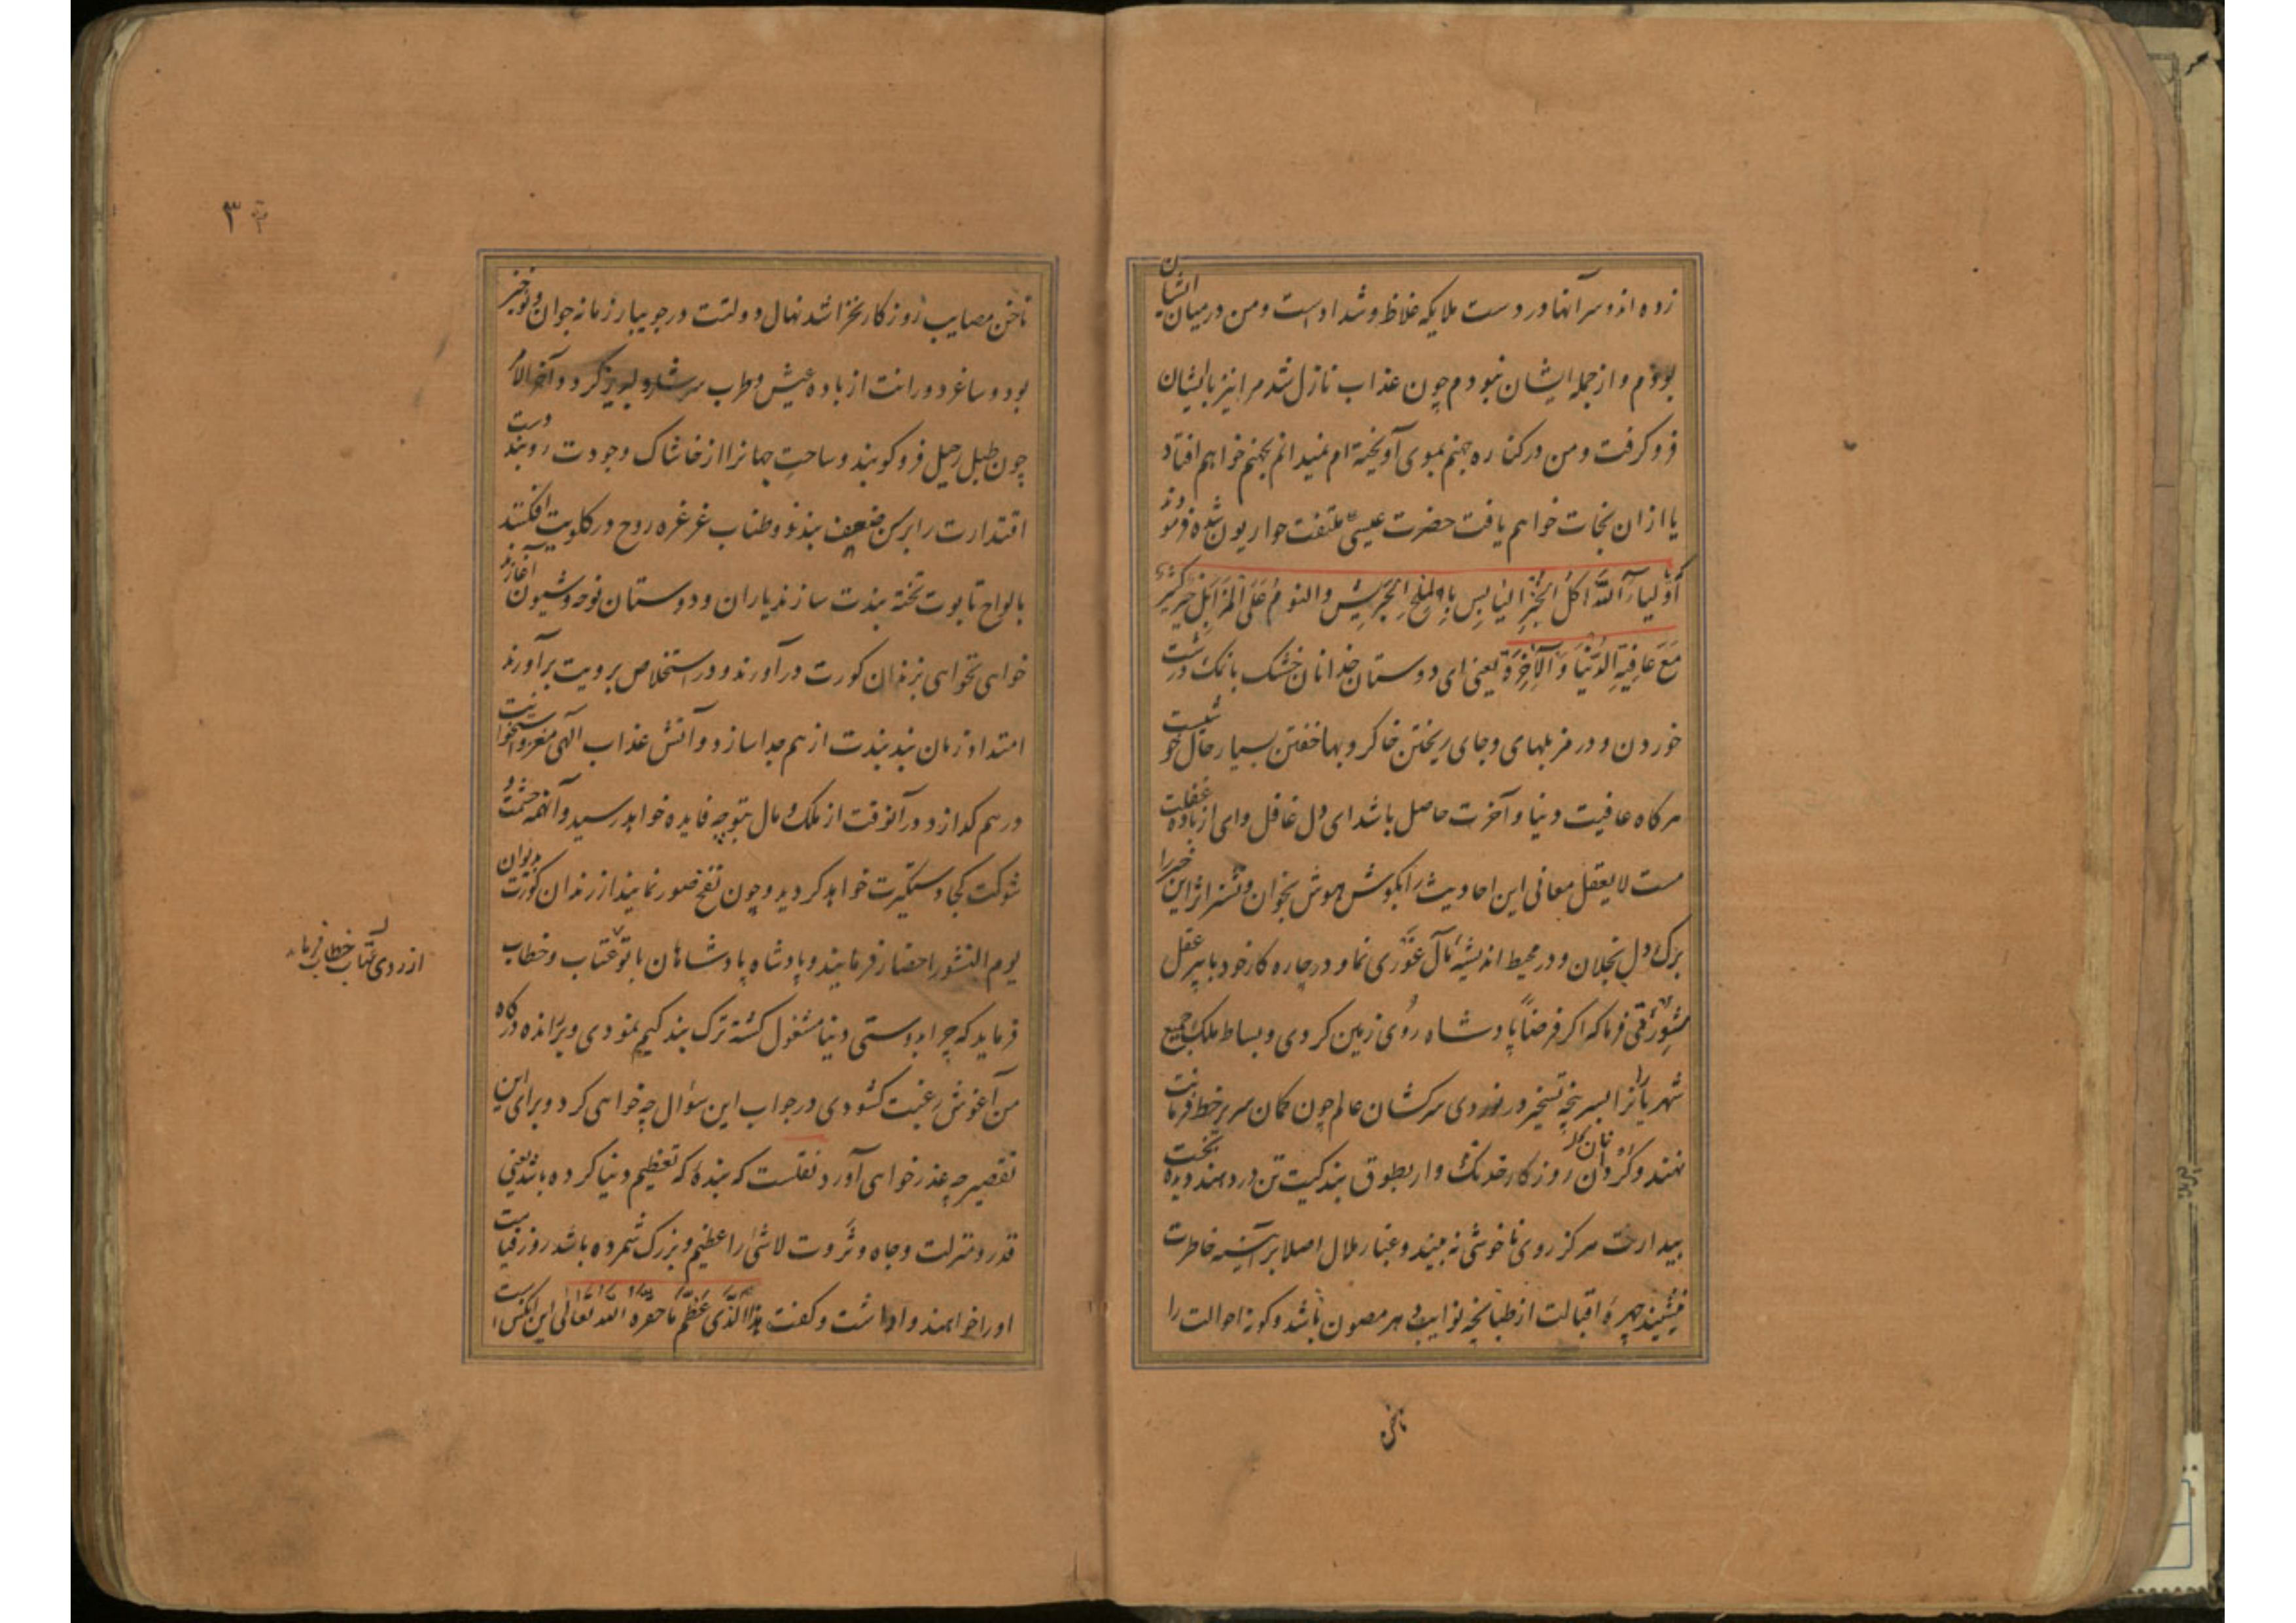 زده از دو سر آنها در دست ملایکه غلاظ و شداد است و من در میان ایشان
بودم و از جمله ایشان نبودم چون عذاب نازل شد مرا نیز با ایشان
فرو کرفت و من در کناره جهنم بموی آویخته ام نمیدانم بجهنم خواهم افتاد
یا ازان نجات خواهم یافت حضرت عیسی ملتفت حواریون شده فرمودند
یا أولیاء الله اکل الخبز الیابس بالملح الجریش والنوم علی المزابل خیر کثیر
مع عافیة الدنیا والآخرة یعنی ای دوستان خدا نان خشک با نمک درشت
خوردن و در مزبلهای و جای ریختن خاکروبها خفتن بسیار حال خوشیست
هرکاه عافیت دنیا و آخرت حاصل باشد ای دل غافل و ای از باده غفلت
مست لایعقل معانی این احادیث را بکوش هوش بخوان و نشتر اثر این خبر را
برک دل بخلان و در محیط اندیشهٔ مآل غوری نما و در چاره کار خود با پیر عقل
مشورتی فرما که اکر فرضاً پادشاه روی زمین کردی و بساط ملک جمیع
شهریارانرا بسر پنجه تسخیر در نوردی سرکشان عالم چون کمان سر بر خط فرمانت
نهند و کردن روزکار خدنک وار بطوق بندکیت تن در دهند دیده بخت
بیدارت هرکز روی ناخوشی نه بیند و غبار ملال اصلا بر آئینه خاطرت
ننشیند چهرهٔ اقبالت از طبانچه نوایب دهر مصون باشد و کونه احوالت را
ناخن
۳
ناخن مصایب روزکار نخراشد نهال دولتت در جویبار زمانه جوان و نوخیز
بود و ساغر دورانت از باده عیش و طرب سرشار و لبریز کردد آخر الامر
چون طبل رحیل فرو کوبند و ساحت جهانرا از خاشاک وجودت روبند دست
اقتدارت را برسن ضعف بندند و طناب غرغره روح در کلویت افکنند
بالواح تابوت تخته بندت سازند یاران و دوستان نوحه و شیون آغازند
خواهی نخواهی بزندان کورت در آورند و در استخلاص برویت برآورند
امتداد زمان بند بندت از هم جدا سازد و آتش عذاب الهی مغز و استخوانت
در هم کدازد در آنوقت از ملک و مال بتو چه فایده خواهد رسید و آنهمه حشمت و
شوکت کجا دستگیرت خواهد کردید و چون نفخ صور نمایند از زندان کورت بدیوان
یوم النشور احضار فرمایند و پادشاه پادشاهان با تو عتاب و خطاب
از روی عتاب خطاب فرماید
فرماید که چرا بدوستی دنیا مشغول کشته ترک بندکیم نمودی و براندهٔ درکاه
من آغوش رغبت کشودی در جواب این سؤال چه خواهی کرد و برای این
تقصیر چه عذر خواهی آورد نقلست که بندهٔ که تعظیم دنیا کرده باشد یعنی
قدر و منزلت و جاه و ثروت لاشیٔ را عظیم و بزرک شمرده باشد روز قیامت
او را خواهند واداشت و کفت هذا الذی عظّم ما حقره الله تعالی این آنکس است